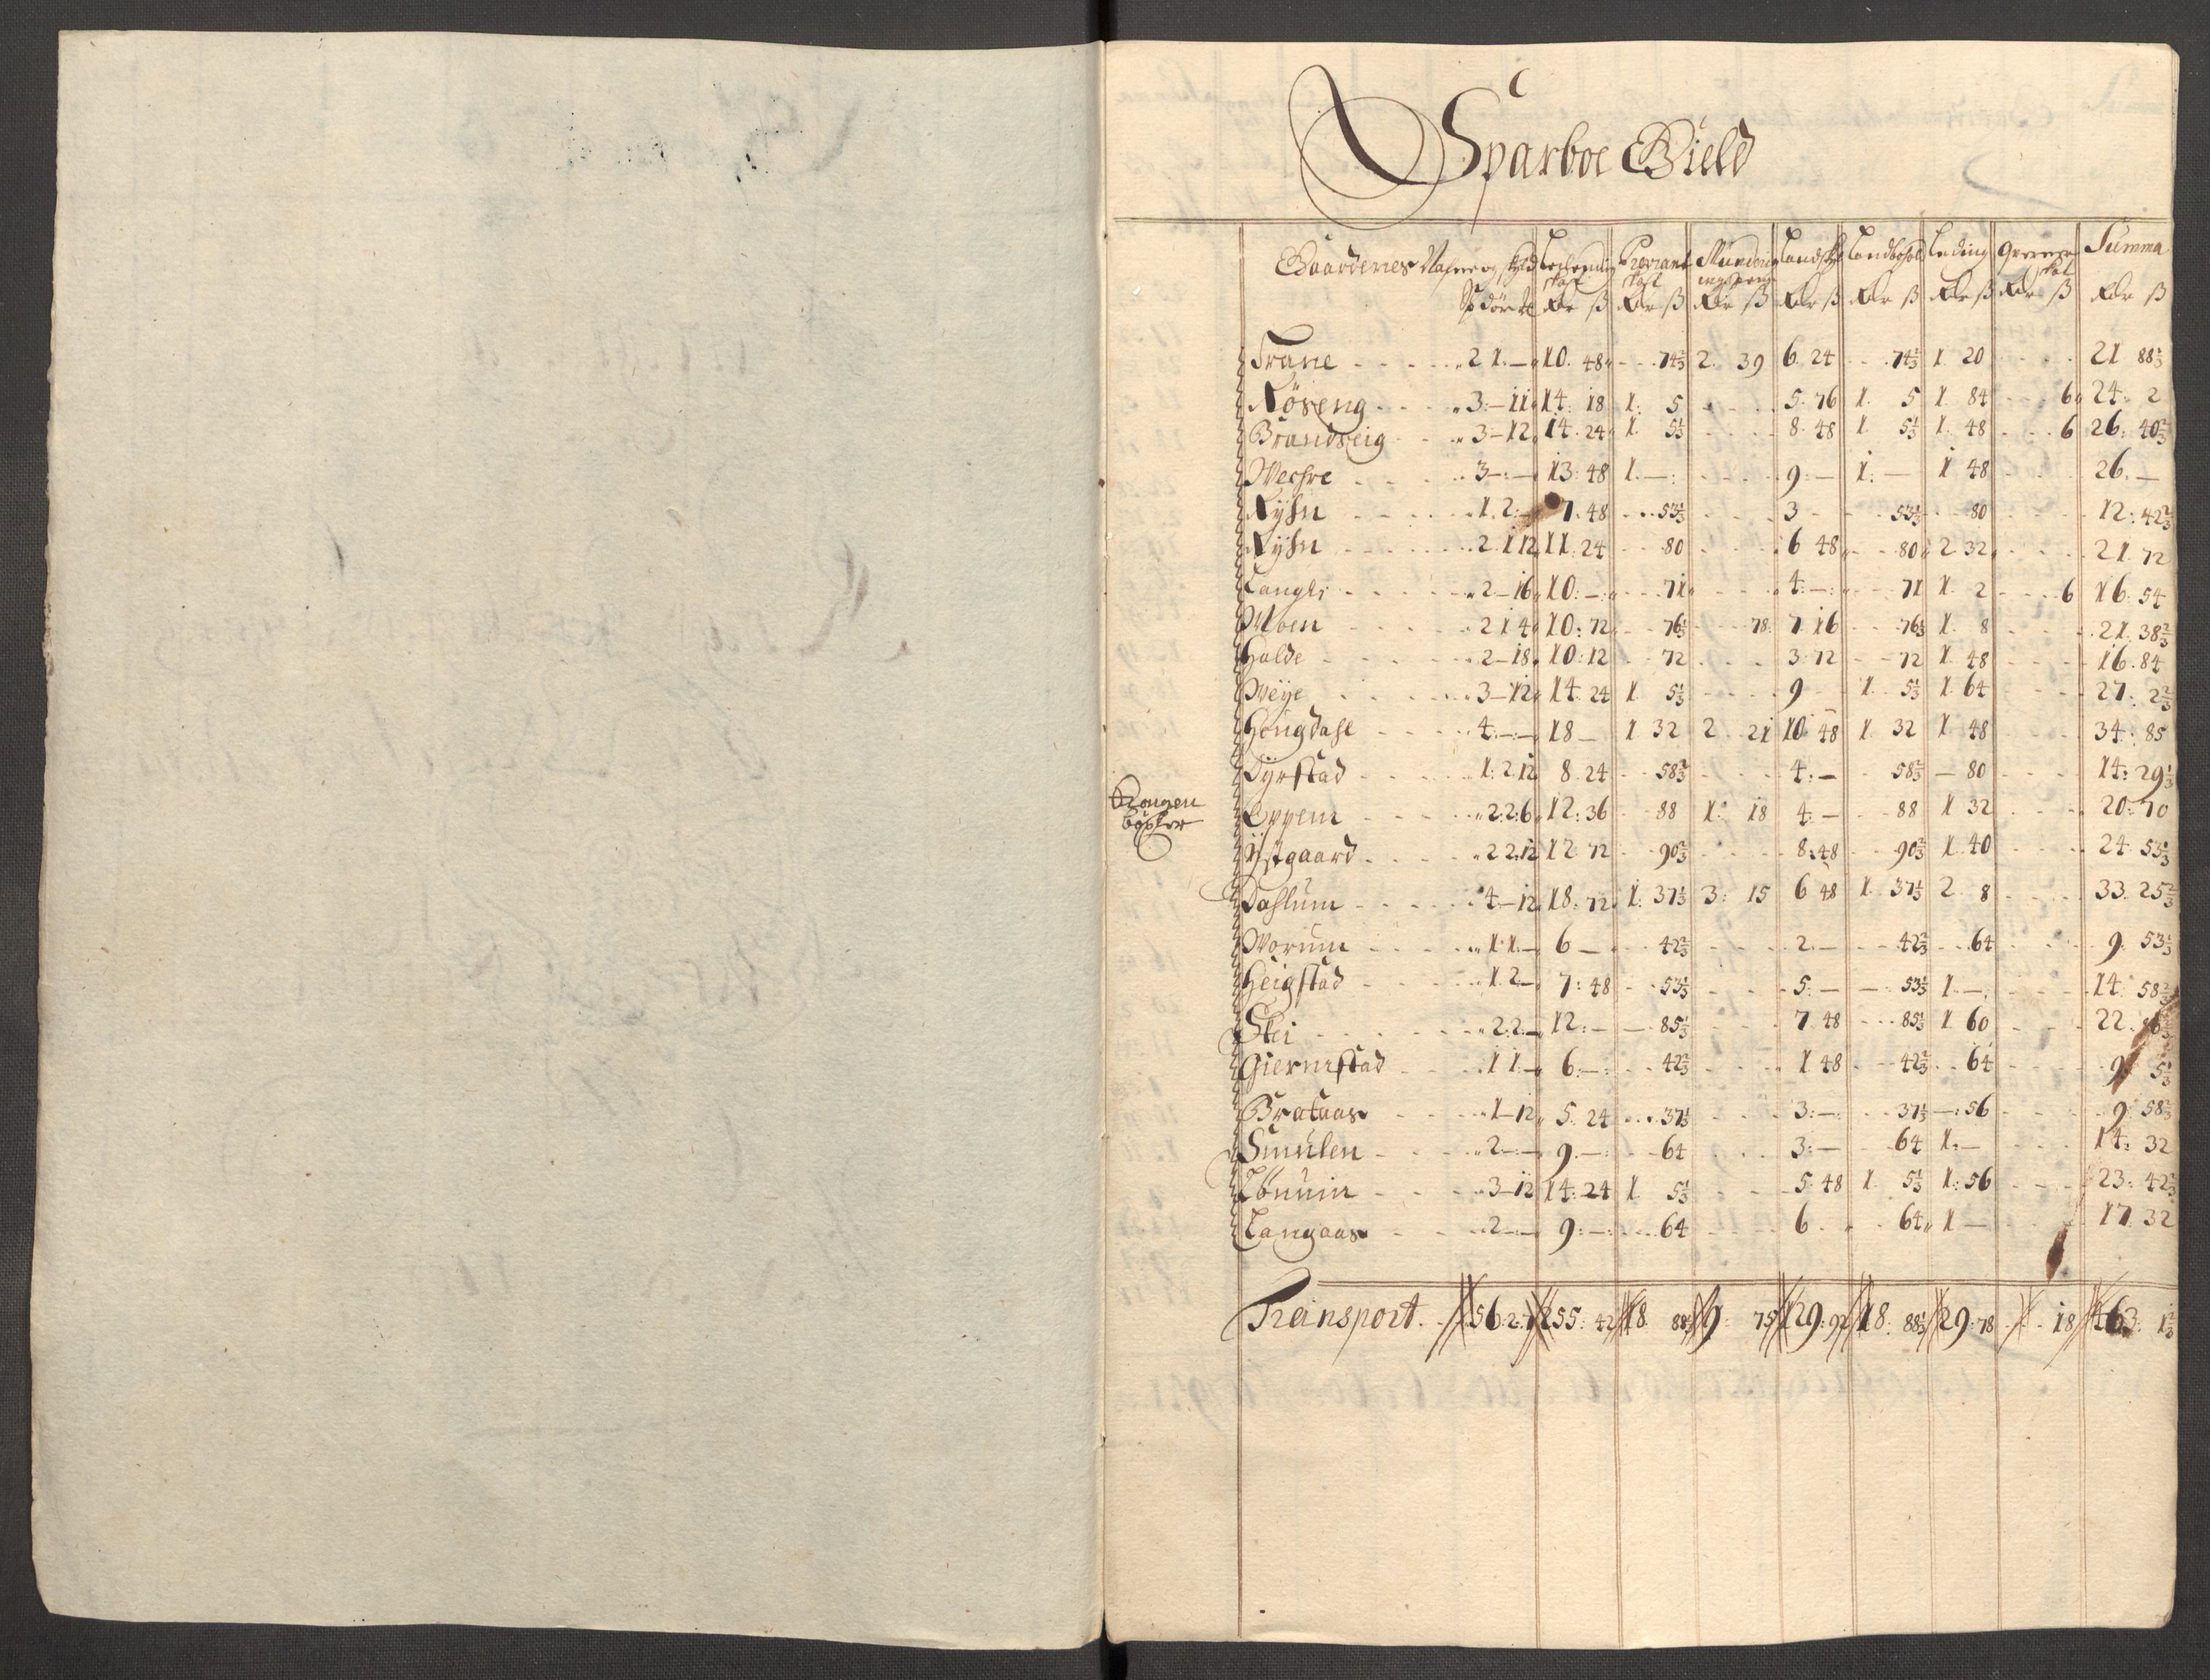 Sparboe Gield
Gaardenes Nafne og skyld Leilending skat Proviant skat Munderings penge Landskyld Landbohold Leding Qvernskat Summa
Sp dør ℔ Rdr ß Rdr ß Rdr ß Rdr ß Rdr ß Rdr ß Rdr ß Rdr ß
Trane 2 1 — 10. 48 74⅔ 2. 39 6. 24 74⅔ 1 20 21 88⅓
Røseng 3 — 11 14. 18 1. 5 5. 76 1. 5 1. 84 6 24. 2
Brandseig 3 — 12 14. 24 1. 5⅓ 8. 48 1 5⅓ 1. 48 6 26. 40⅔
3 — 13. 48 1. — 9. — 1. — 1 48 26. —
Rysn 1. 2. — 7. 48 53⅓ 3 53⅓ 80 12. 42⅔
Rysn 2. 1 12 11. 24 80 6 48 80 2 32 21. 72
Langli 2 — 16 10. — 71 4. — 71 1. 2 6 16. 54
Moen 2 1 4 10. 72 76⅓ 78 7. 16 76⅓ 1. 8 21. 38⅔
Halde 2 — 18 10. 12 72 3. 72 72 1. 48 16. 84
3 — 12 14. 24 1. 5⅓ 9 1. 5⅓ 1. 64 27. 2⅔
Hongdahl 4. — 18 — 1 32 2 21 10 48 1. 32 1. 48 34. 85
Dyrstad 1. 2. 12 8. 24 58⅔ 4. — 58⅔ — 80 14. 29⅓
Kongen bøxler Oppem 2. 2. 6 12. 36 88 1. 18 4. — 88 1 32 20. 70
Østgaard 2 2. 12 12 72 90⅔ 8. 48 90⅔ 1. 40 24 53⅓
Dahlum 4 — 12 18. 72 1. 37⅓ 3. 15 6 48 1. 37⅓ 2. 8 33. 25⅔
Worum 1. 1. — 6 — 42⅔ 2. — 42⅔ 64 9. 53⅓
Heigstad 1 2 — 7. 48 53⅓ 5. — 53⅓ 1. — 14. 58⅔
2. 2. — 12. — 85⅓ 7. 48 85⅓ 1 60 22.
Giermstad 1 1. — 6. — 42⅔ 1 48 42⅔ 64 9. 5⅓
Brataas 1 — 12 5. 24 37⅓ 3. — 37⅓ — 56 9. 58⅔
Smulen 2 — 9. — 64 3. — 64 1. — 14. 32
Lønnin 3 — 12 14. 24 1. 5⅓ 5. 48 1. 5⅓ 1. 56 23. 42⅔
Langaas 2 — 9. — 64 6. 64 1 — 17. 32
Transport 56. 2. 255. 42 18. 88⅓ 9. 75 129. 92 18. 88⅓ 29. 78 18 463. 1⅔